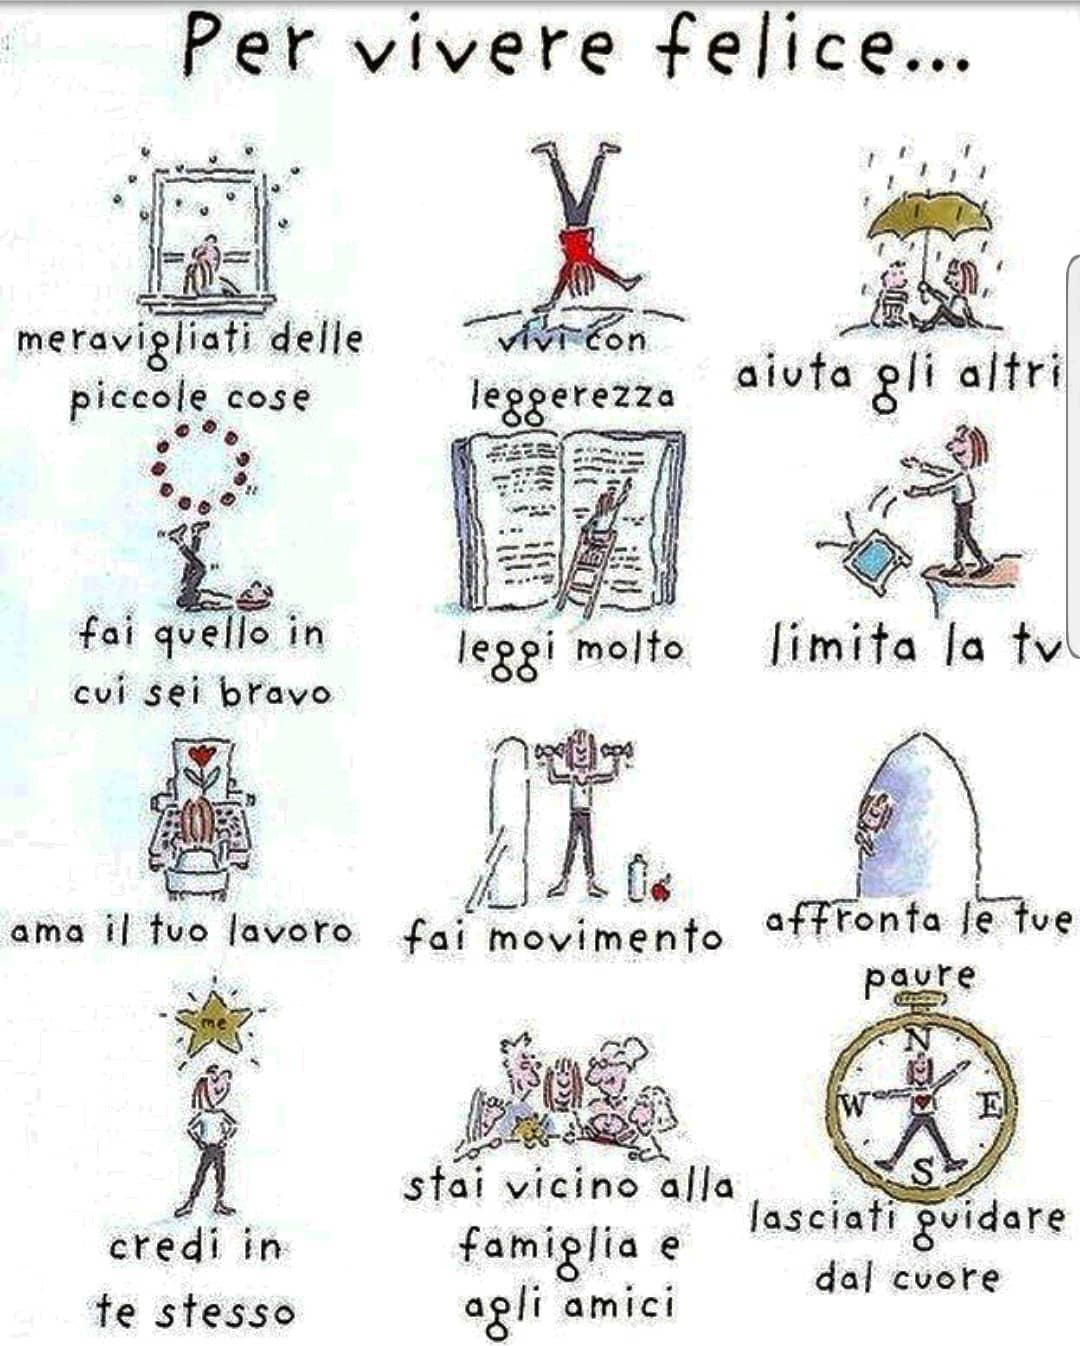 Per vivere felice...
meravigliati delle
piccole cose
vivi con
leggerezza
aiuta gli altri
fai quello in
cui sei bravo
leggi molto
limita la tv
ama il tuo lavoro
fai movimento
affronta le tue
paure
me
credi in
te stesso
stai vicino alla
famiglia e
agli amici
N
W
E
S
lasciati guidare
dal cuore